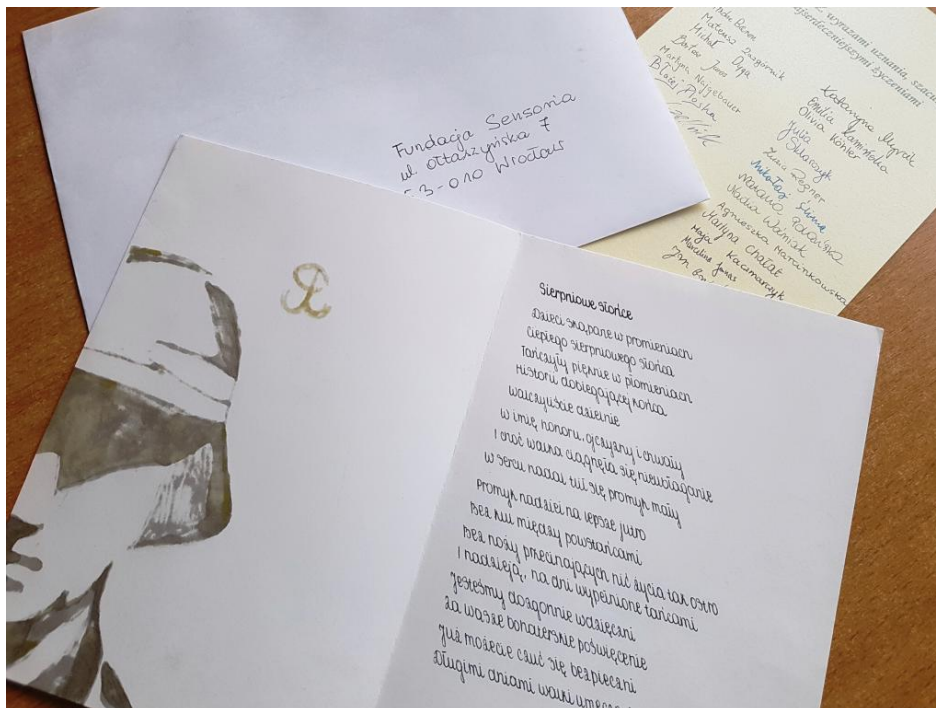 Fundacja Sensoria
ul. Ołtaszyńska 7
53-010 Wrocław
Z wyrazami uznania, szacu
najserdeczniejszymi życzeniami
Mateusz Zazgórnik
Michał Dyja
Bartek Janas
Martyna Najgebauer
Błażej Płoska
Katarzyna Myrcik
Emilia Kamińska
Olivia Köhler
Julia Sklarczyk
Zuzia Zegner
Mikołaj
Natalia
Nadia Woźniak
Agnieszka Marcinkowska
Martyna Chałat
Maja Kaczmarczyk
Marcelina Janas
Jan
Sierpniowe słońce
Dzieci skąpane w promieniach
ciepłego sierpniowego słońca
Tańczyły pięknie w płomieniach
Historii dobiegającej końca
Walczyliście dzielnie
w imię honoru, ojczyzny i chwały
I choć walka ciągnęła się nieubłaganie
w sercu nadal tlił się promyk mały
Promyk nadziei na lepsze jutro
Bez kul między powstańcami
Bez noży przecinających nić życia tak ostro
I nadzieją, na dni wypełnione tańcami
Jesteśmy dozgonnie wdzięczni
Za wasze bohaterskie poświęcenie
Już możecie czuć się bezpieczni
Długimi dniami walki umęcz